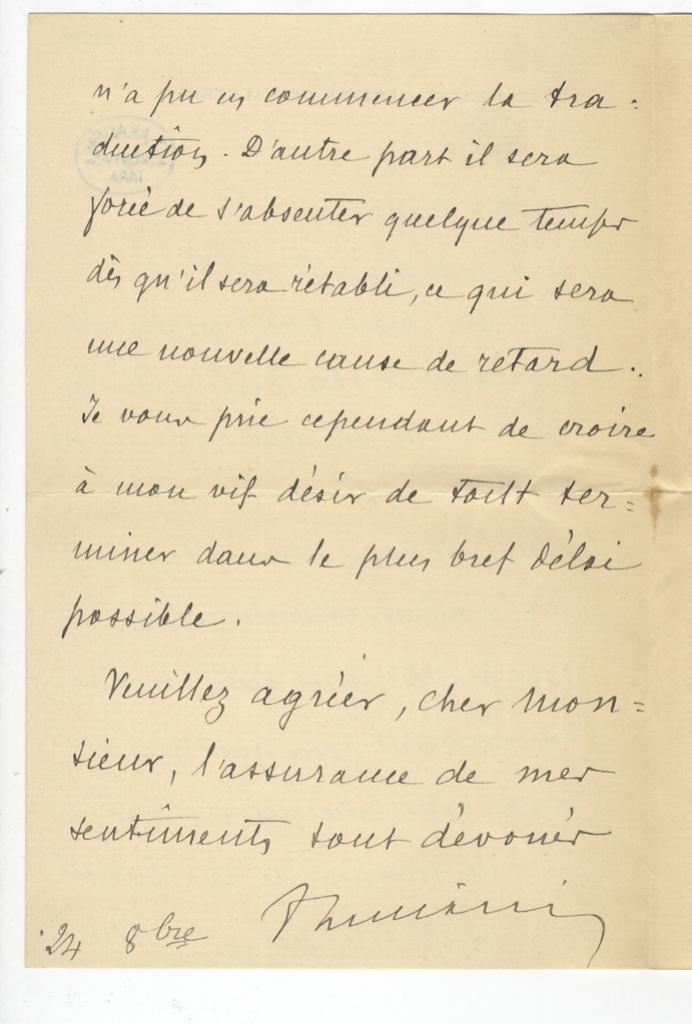 n'a pu en commencer la tra-
duction. D'autre part il sera
forcé de s'absenter quelque temps
dès qu'il sera rétabli, ce qui sera
une nouvelle cause de retard.
Je vous prie cependant de croire
à mon vif désir de tout ter=
miner dans le plus bref délai
possible.
Veuillez agréer, cher Mon=
sieur, l'assurance de mes
sentiments tout dévoués
24 8bre